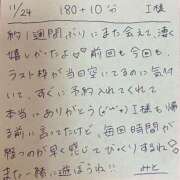 11/24 180+10分 I様
約1週間ぶりにまた会えて、凄く
嬉しかったよ♡♡前回も今回も、
ラスト枠が当日空いてるのに気付
いて、すぐに予約入れてくれて
本当にありがとう(๑′ᴗ‵๑) I様も帰
る前に言ってたけど、毎回時間が
経つのが早く感じてびっくりするね◦
また一緒に遊ぼうね!! みと